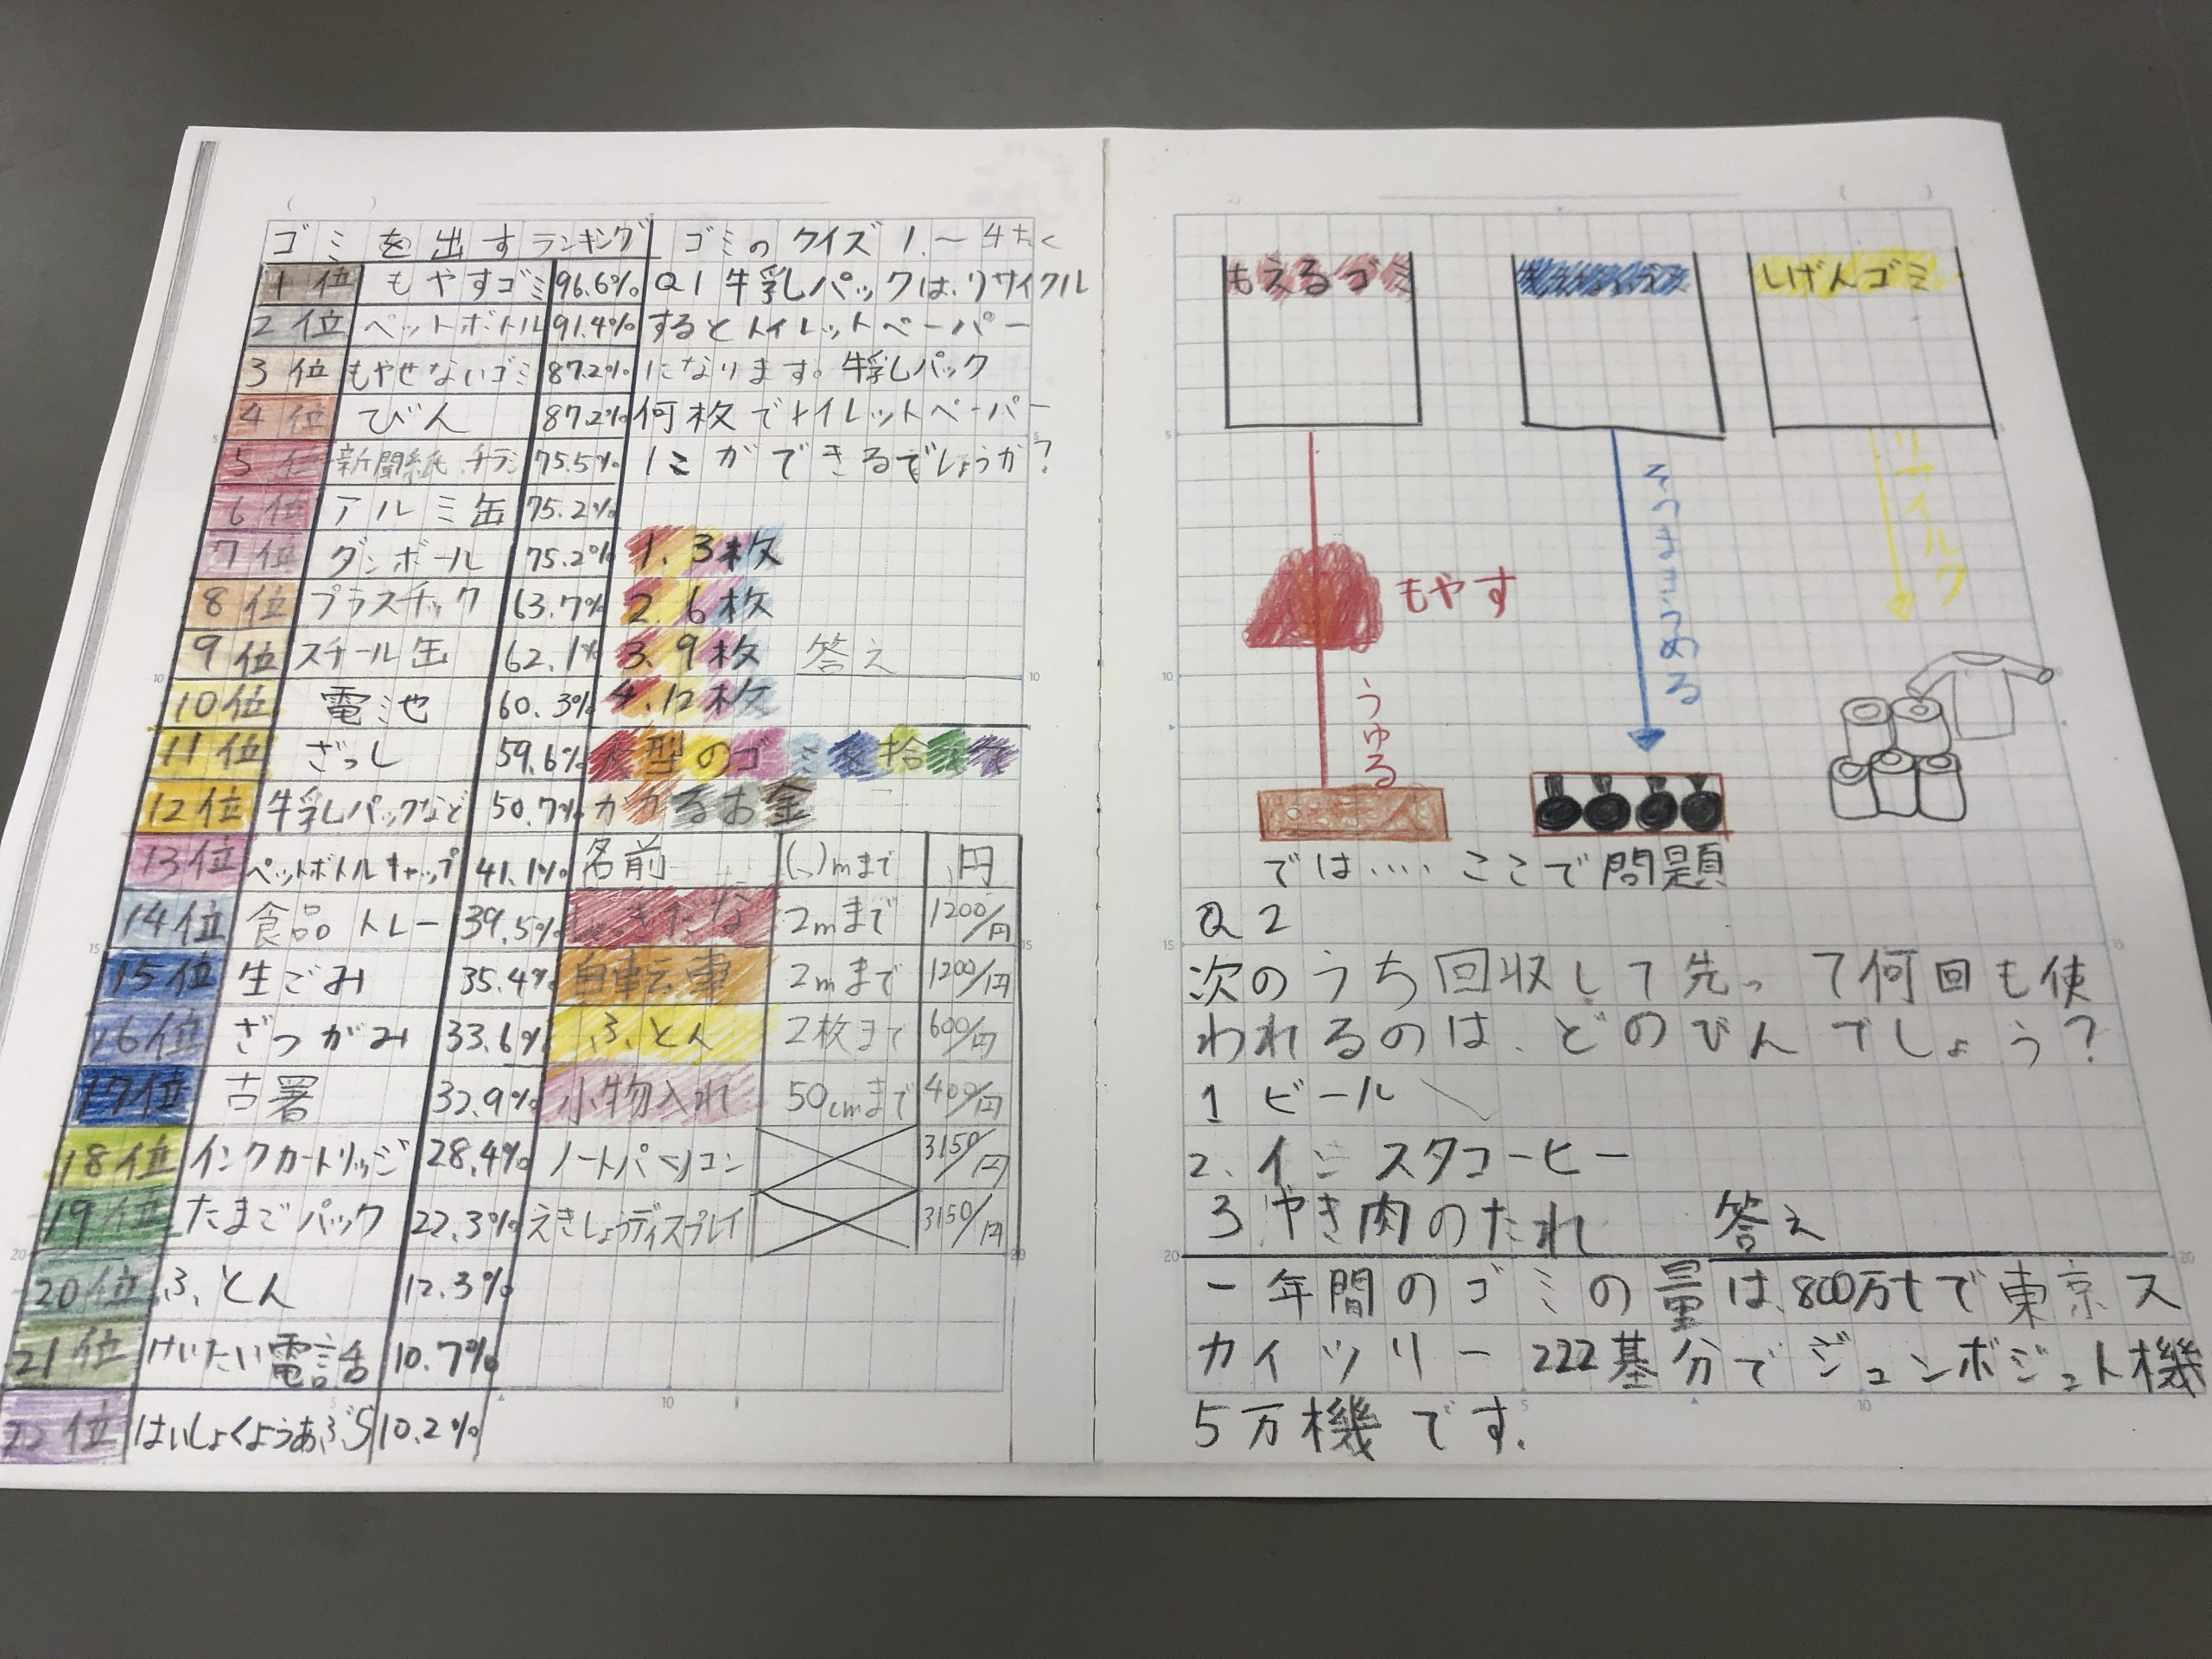 ゴミを出すランキング
1位 もやすゴミ 96.6%
2位 ペットボトル 91.4%
3位 もやせないゴミ 87.2%
4位 びん 87.2%
5位 新聞紙 チラシ 75.5%
6位 アルミ缶 75.2%
7位 ダンボール 75.2%
8位 プラスチック 63.7%
9位 スチール缶 62.1%
10位 電池 60.3%
11位 ざっし 59.6%
12位 牛乳パックなど 50.7%
13位 ペットボトルキャップ 41.1%
14位 食品トレー 39.5%
15位 生ごみ 35.4%
16位 ざつがみ 33.6%
17位 古署 32.9%
18位 インクカートリッジ 28.4%
19位 たまごパック 22.3%
20位 ふとん 12.3%
21位 けいたい電話 10.7%
22位 はいしょくようあぶら 10.2%
ゴミのクイズ 1.〜4たく
Q1 牛乳パックは、リサイクル
するとトイレットペーパー
になります。牛乳パック
何枚でトイレットペーパー
1こができるでしょうか?
1. 3枚
2. 6枚
3. 9枚 答え
4. 12枚
大型のゴミを拾
かかるお金
名前 (、)mまで 円
しょっきだな 2mまで 1200/円
自転車 2mまで 1200/円
ふとん 2枚まで 600/円
小物入れ 50cmまで 400/円
ノートパソコン 3150/円
えきしょうディスプレイ 3150/円
もえるゴミ
しげんゴミ
もやす
うめる
リサイクル
では‥‥ここで問題
Q2
次のうち回収して先って何回も使
われるのは、どのびんでしょう?
1 ビール
2. インスタコーヒー
3 やき肉のたれ 答え
一年間のゴミの量は、800万tで東京ス
カイツリー222基分でジュンボジェット機
5万機です.